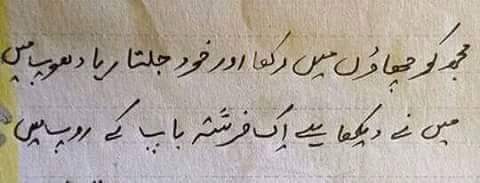 مجھ کو چھاؤں میں رکھا اور خود جلتا رہا دھوپ میں
میں نے دیکھا ہے اک فرشتہ باپ کے روپ میں